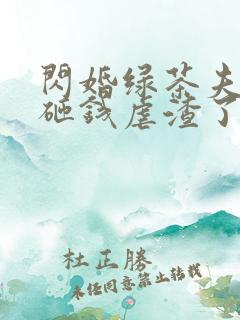 閃婚绿茶夫
砸錢虐渣了
杜正勝
未经同意禁止转载